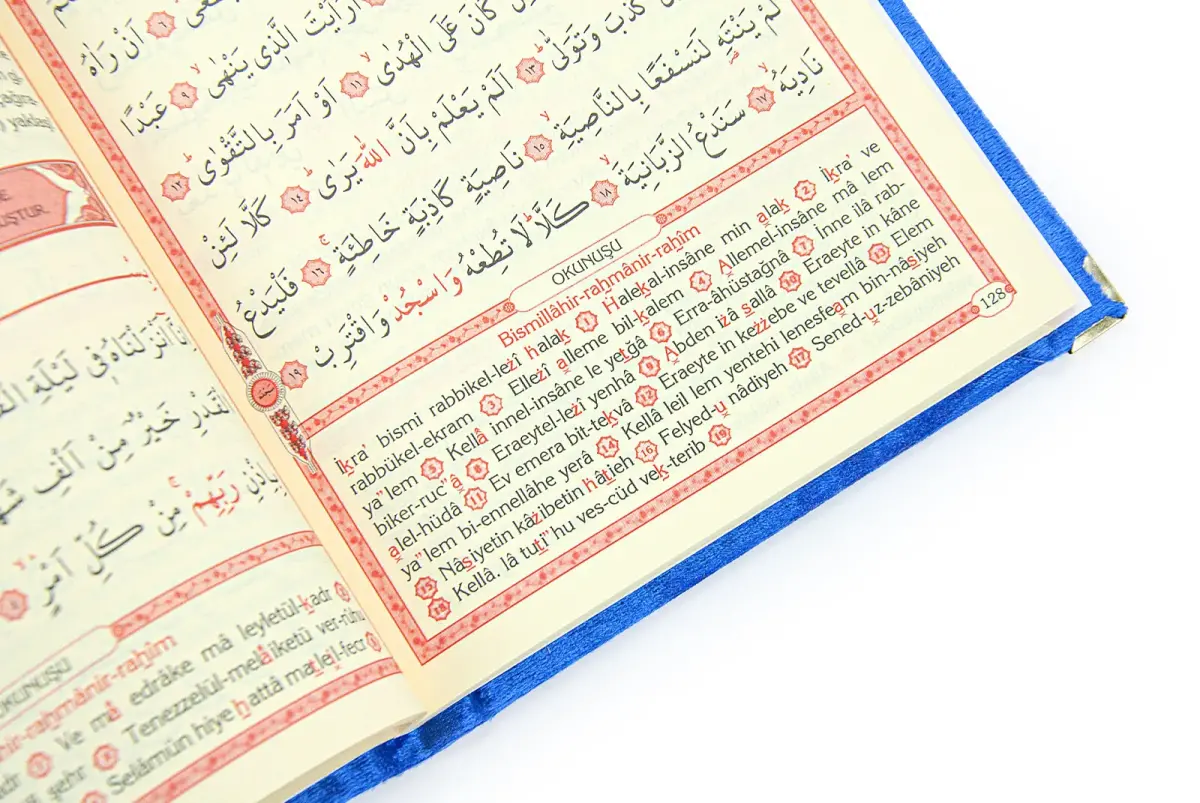 اَنْ رَاٰهُ
اَرَاَيْتَ الَّذ۪ي يَنْهٰىۙ ﴿٩﴾ عَبْدًا
كَانَ عَلَى الْهُدٰىۙ ﴿١١﴾ اَوْ اَمَرَ بِالتَّقْوٰىۜ ﴿١٢﴾
كَذَّبَ وَتَوَلّٰىۜ ﴿١٣﴾ اَلَمْ يَعْلَمْ بِاَنَّ اللّٰهَ يَرٰىۜ ﴿١٤﴾ كَلَّا لَئِنْ
لَمْ يَنْتَهِ لَنَسْفَعًا بِالنَّاصِيَةِۙ ﴿١٥﴾ نَاصِيَةٍ كَاذِبَةٍ خَاطِئَةٍۚ ﴿١٦﴾ فَلْيَدْعُ
نَادِيَهُۙ ﴿١٧﴾ سَنَدْعُ الزَّبَانِيَةَۙ ﴿١٨﴾ كَلَّاۜ لَا تُطِعْهُ وَاسْجُدْ وَاقْتَرِبْ ﴿١٩﴾
OKUNUŞU
Bismillâhir-rahmânir-rahîm
İkra' bismi rabbikel-lezî halak 1 Halekal-insâne min alak 2 İkra' ve
rabbükel-ekram 3 Ellezî alleme bil-kalem 4 Allemel-insâne mâ lem
ya"lem 5 Kellâ innel-insâne le yetğâ 6 Erra-âhüstağnâ 7 İnne ilâ rab-
biker-ruc"â 8 Eraeytel-lezî yenhâ 9 Abden izâ sallâ 10 Eraeyte in kâne
alel-hüdâ 11 Ev emera bit-tekvâ 12 Eraeyte in kezzebe ve tevellâ 13 Elem
ya"lem bi-ennellâhe yerâ 14 Kellâ leil lem yentehi lenesfeam bin-nâsiyeh
15 Nâsiyetin kâzibetin hâtieh 16 Felyed-u nâdiyeh 17 Sened-uz-zebâniyeh
18 Kellâ. lâ tuti"hu ves-cüd vek-terib 19
128
لَيْلَةِ
خَيْرٌ مِنْ اَلْفِ
رَبِّهِمْۚ مِنْ كُلِّ اَمْرٍۙ
OKUNUŞU
rahmânir-rahîm
kadr
1 Ve mâ edrâke mâ leyletül-kadr
Tenezzelül-melâiketü
Selâmün hiye hattâ matleıl-fecr